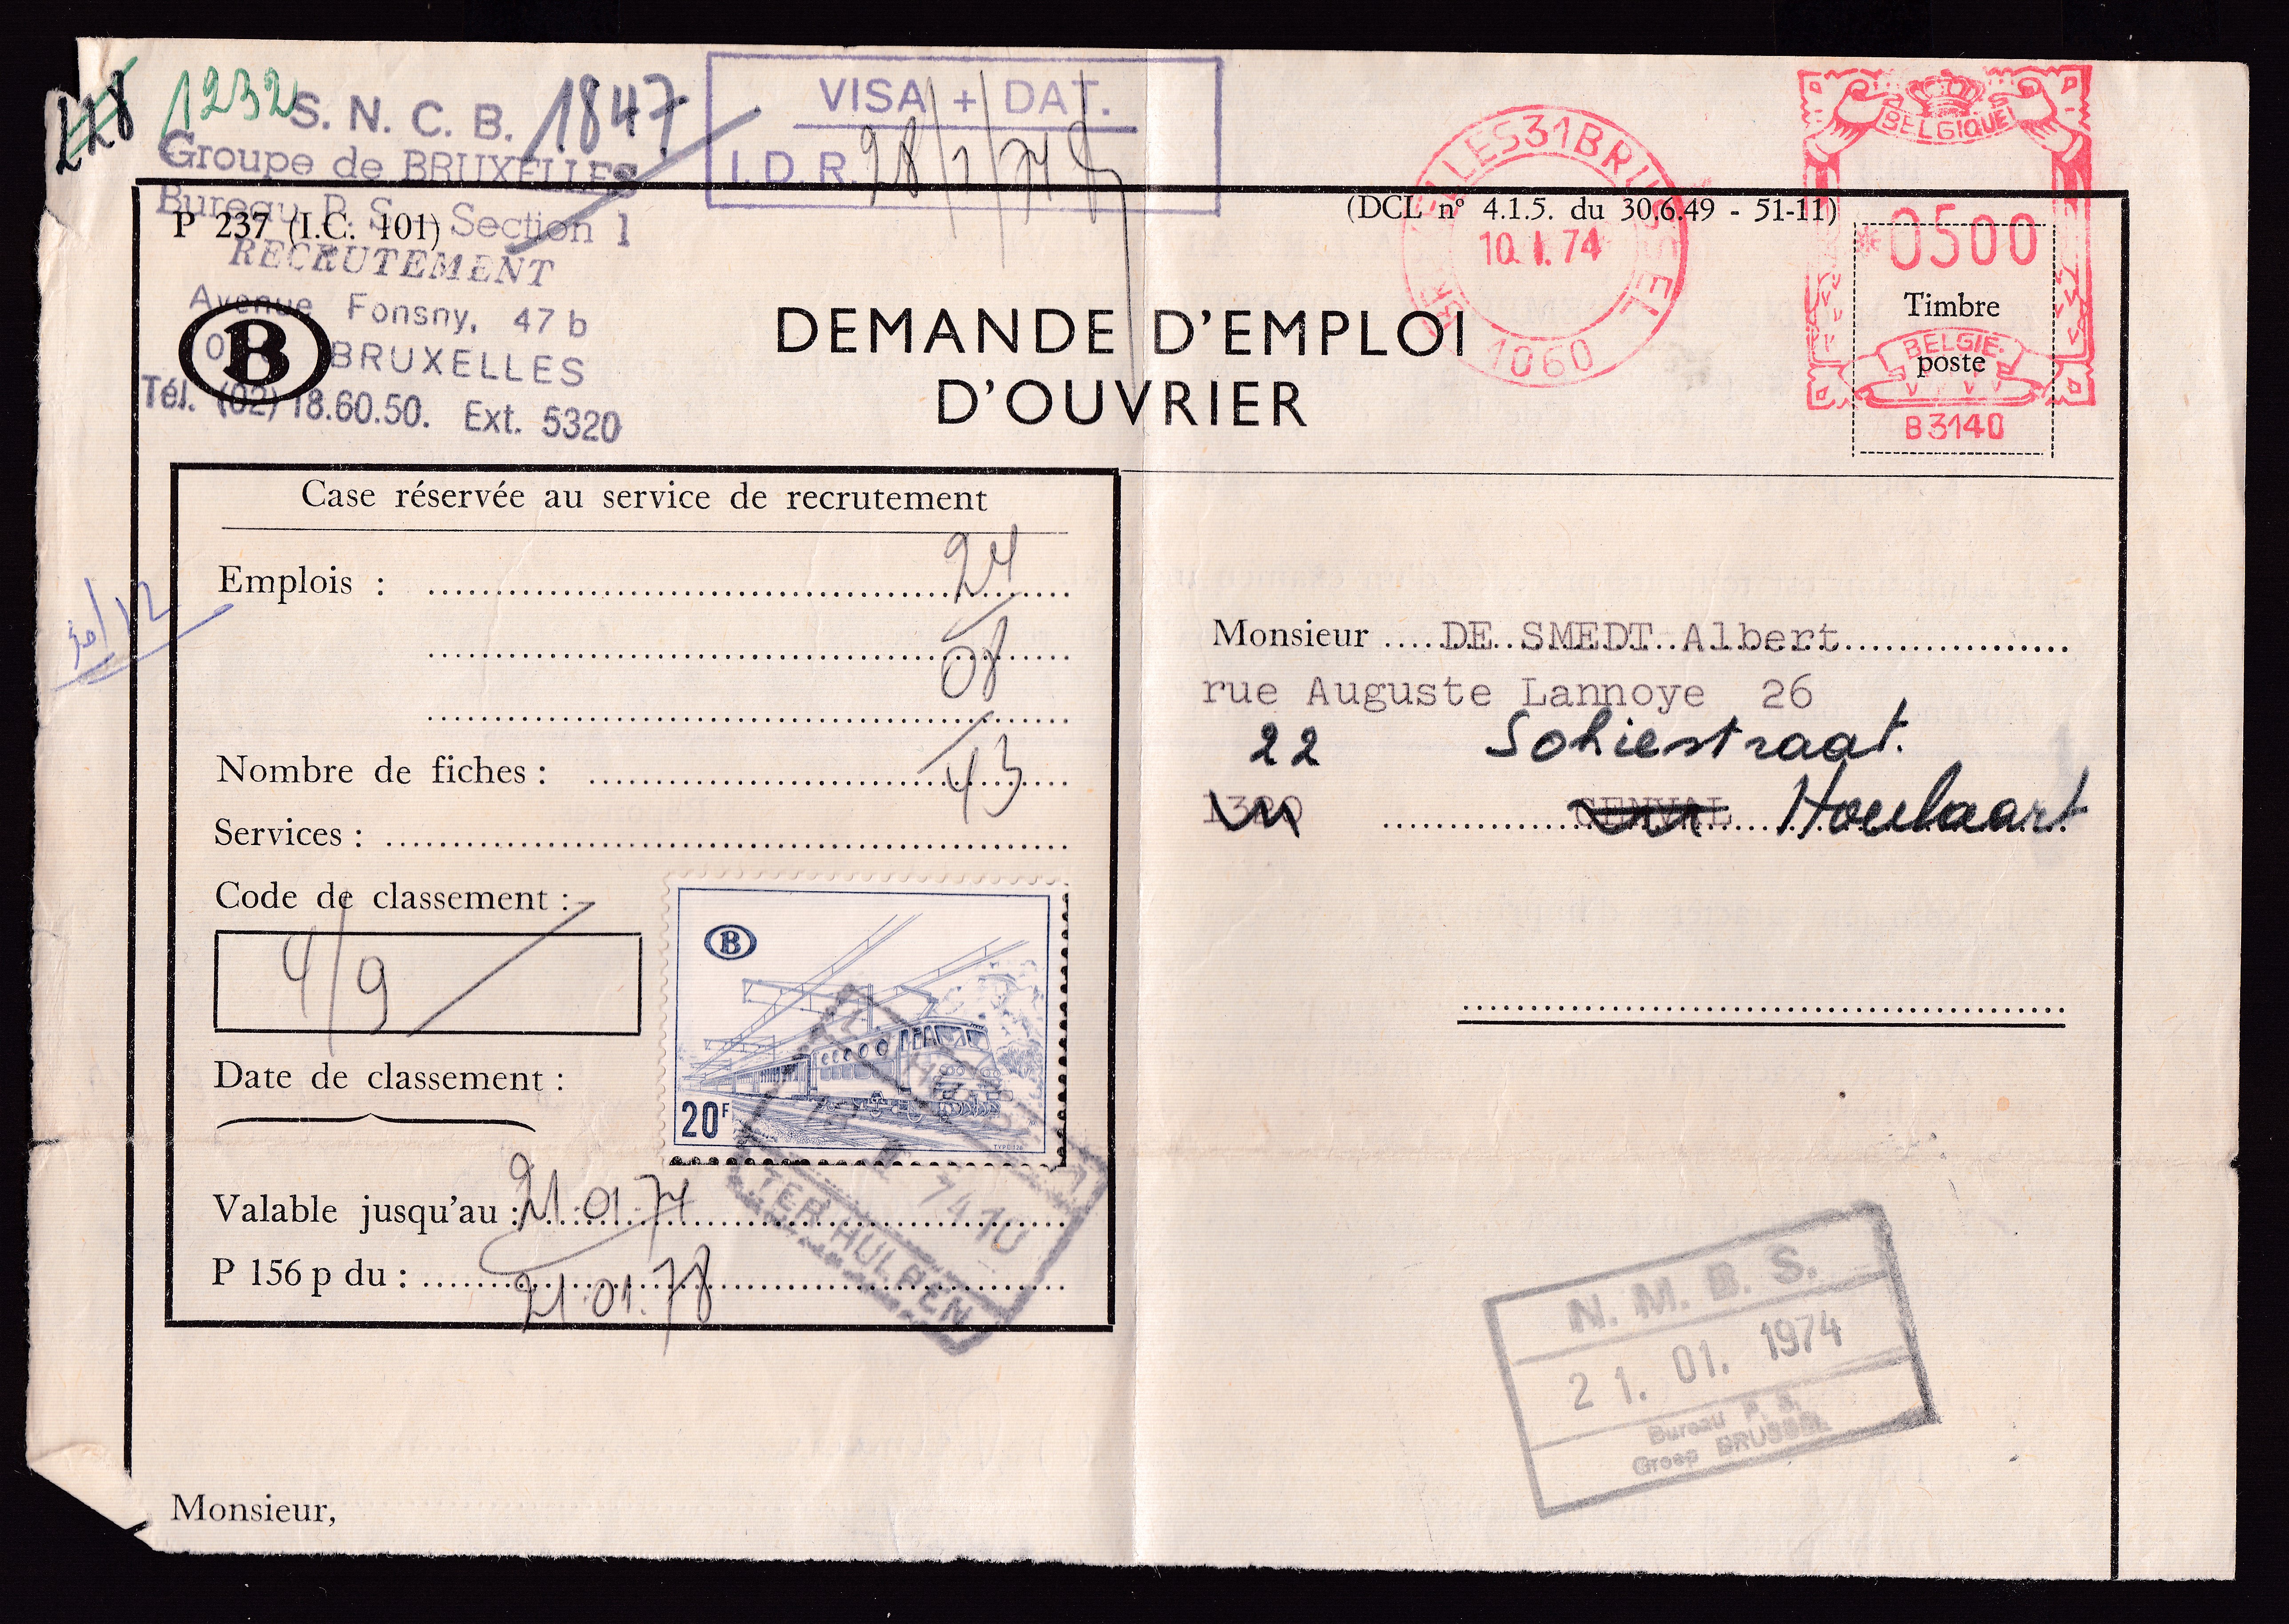 118 1232 1847
S. N. C. B.
Groupe de BRUXELLES
Bureau P. S. - Section 1
RECRUTEMENT
Avenue Fonsny, 47 b
BRUXELLES
Tél. (02) 18.60.50. Ext. 5320
VISA + DAT.
I.D.R. 28/1/74
BRUXELLES 31 BRUSSEL
10. I. 74
1060
BELGIQUE
*0500
BELGIË
B3140
P 237 (I.C. 101)
(DCL nº 4.1.5. du 30.6.49 - 51-11)
Timbre
poste
B
DEMANDE D'EMPLOI
D'OUVRIER
Case réservée au service de recrutement
Emplois : 24
08
43
Nombre de fiches :
Services :
Code de classement :
4/9
Date de classement :
Valable jusqu'au : 21.01.74
P 156 p du : 21.01.78
30/12
B
20F
74.10
TER HULPEN
Monsieur DE SMEDT Albert
rue Auguste Lannoye 26
22 Sohiestraat.
1320 GENVAL Hoeilaart
N. M. B. S.
21. 01. 1974
Bureau P. S.
Groep BRUSSEL
Monsieur,